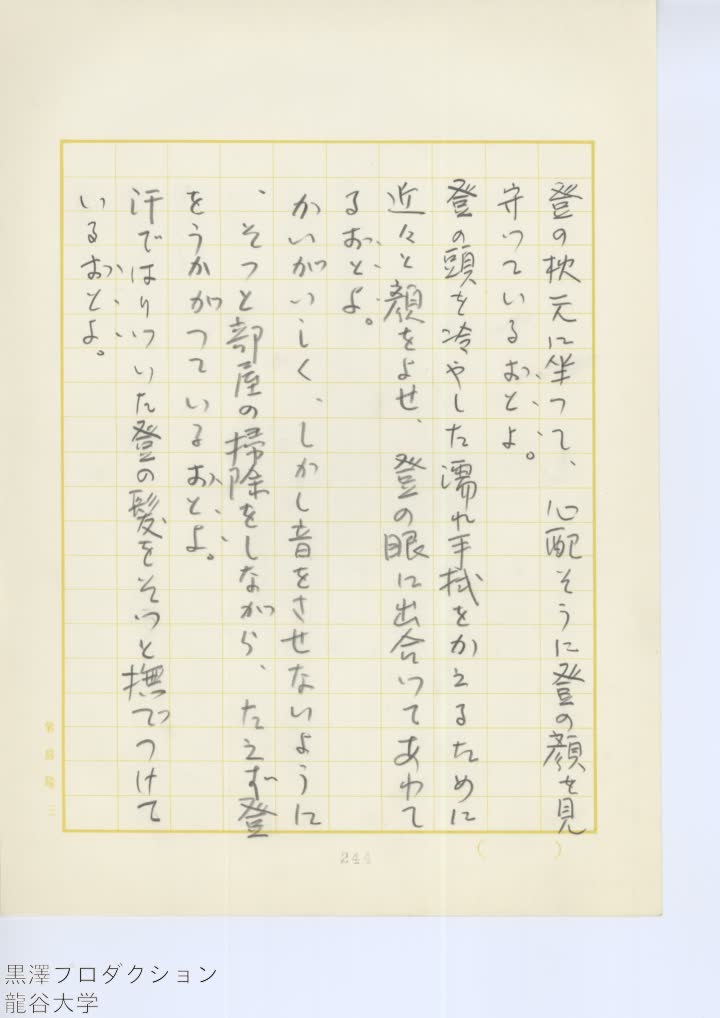 登の枕元に坐つて、心配そうに登の顔を見
守つているおとよ。
登の頭を冷やした濡れ手拭をかえるために
近々と顔をよせ、登の眼に出合つてあわて
るおとよ。
かいがいしく、しかし音をさせないように
、そつと部屋の掃除をしながら、たえず登
をうかがつているおとよ。
汗ではりついた登の髪をそつと撫でつけて
いるおとよ。
244
黒澤プロダクション
龍谷大学